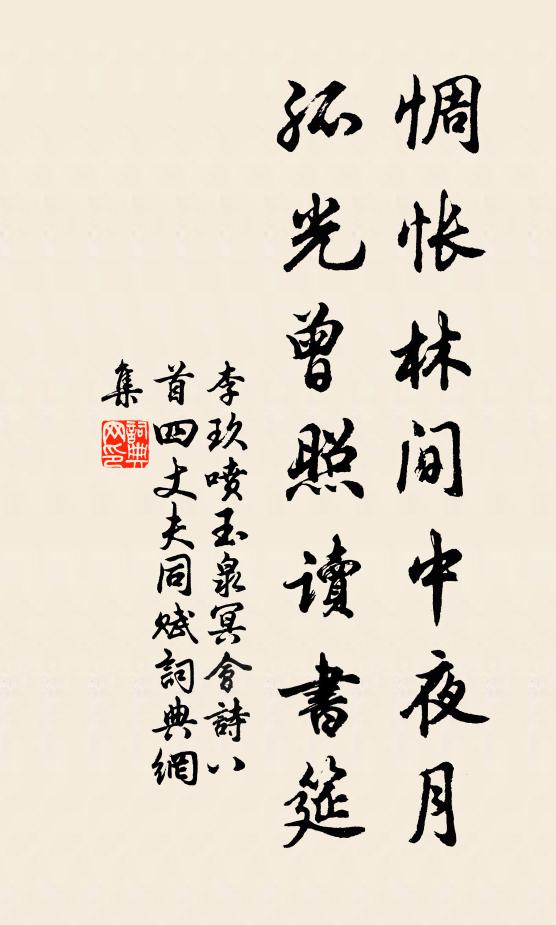 惆悵林間中夜月
孤光曾照讀書筵
李玖噴玉泉冥會詩八
首四丈夫同賦詞典網
集
詞典
网印